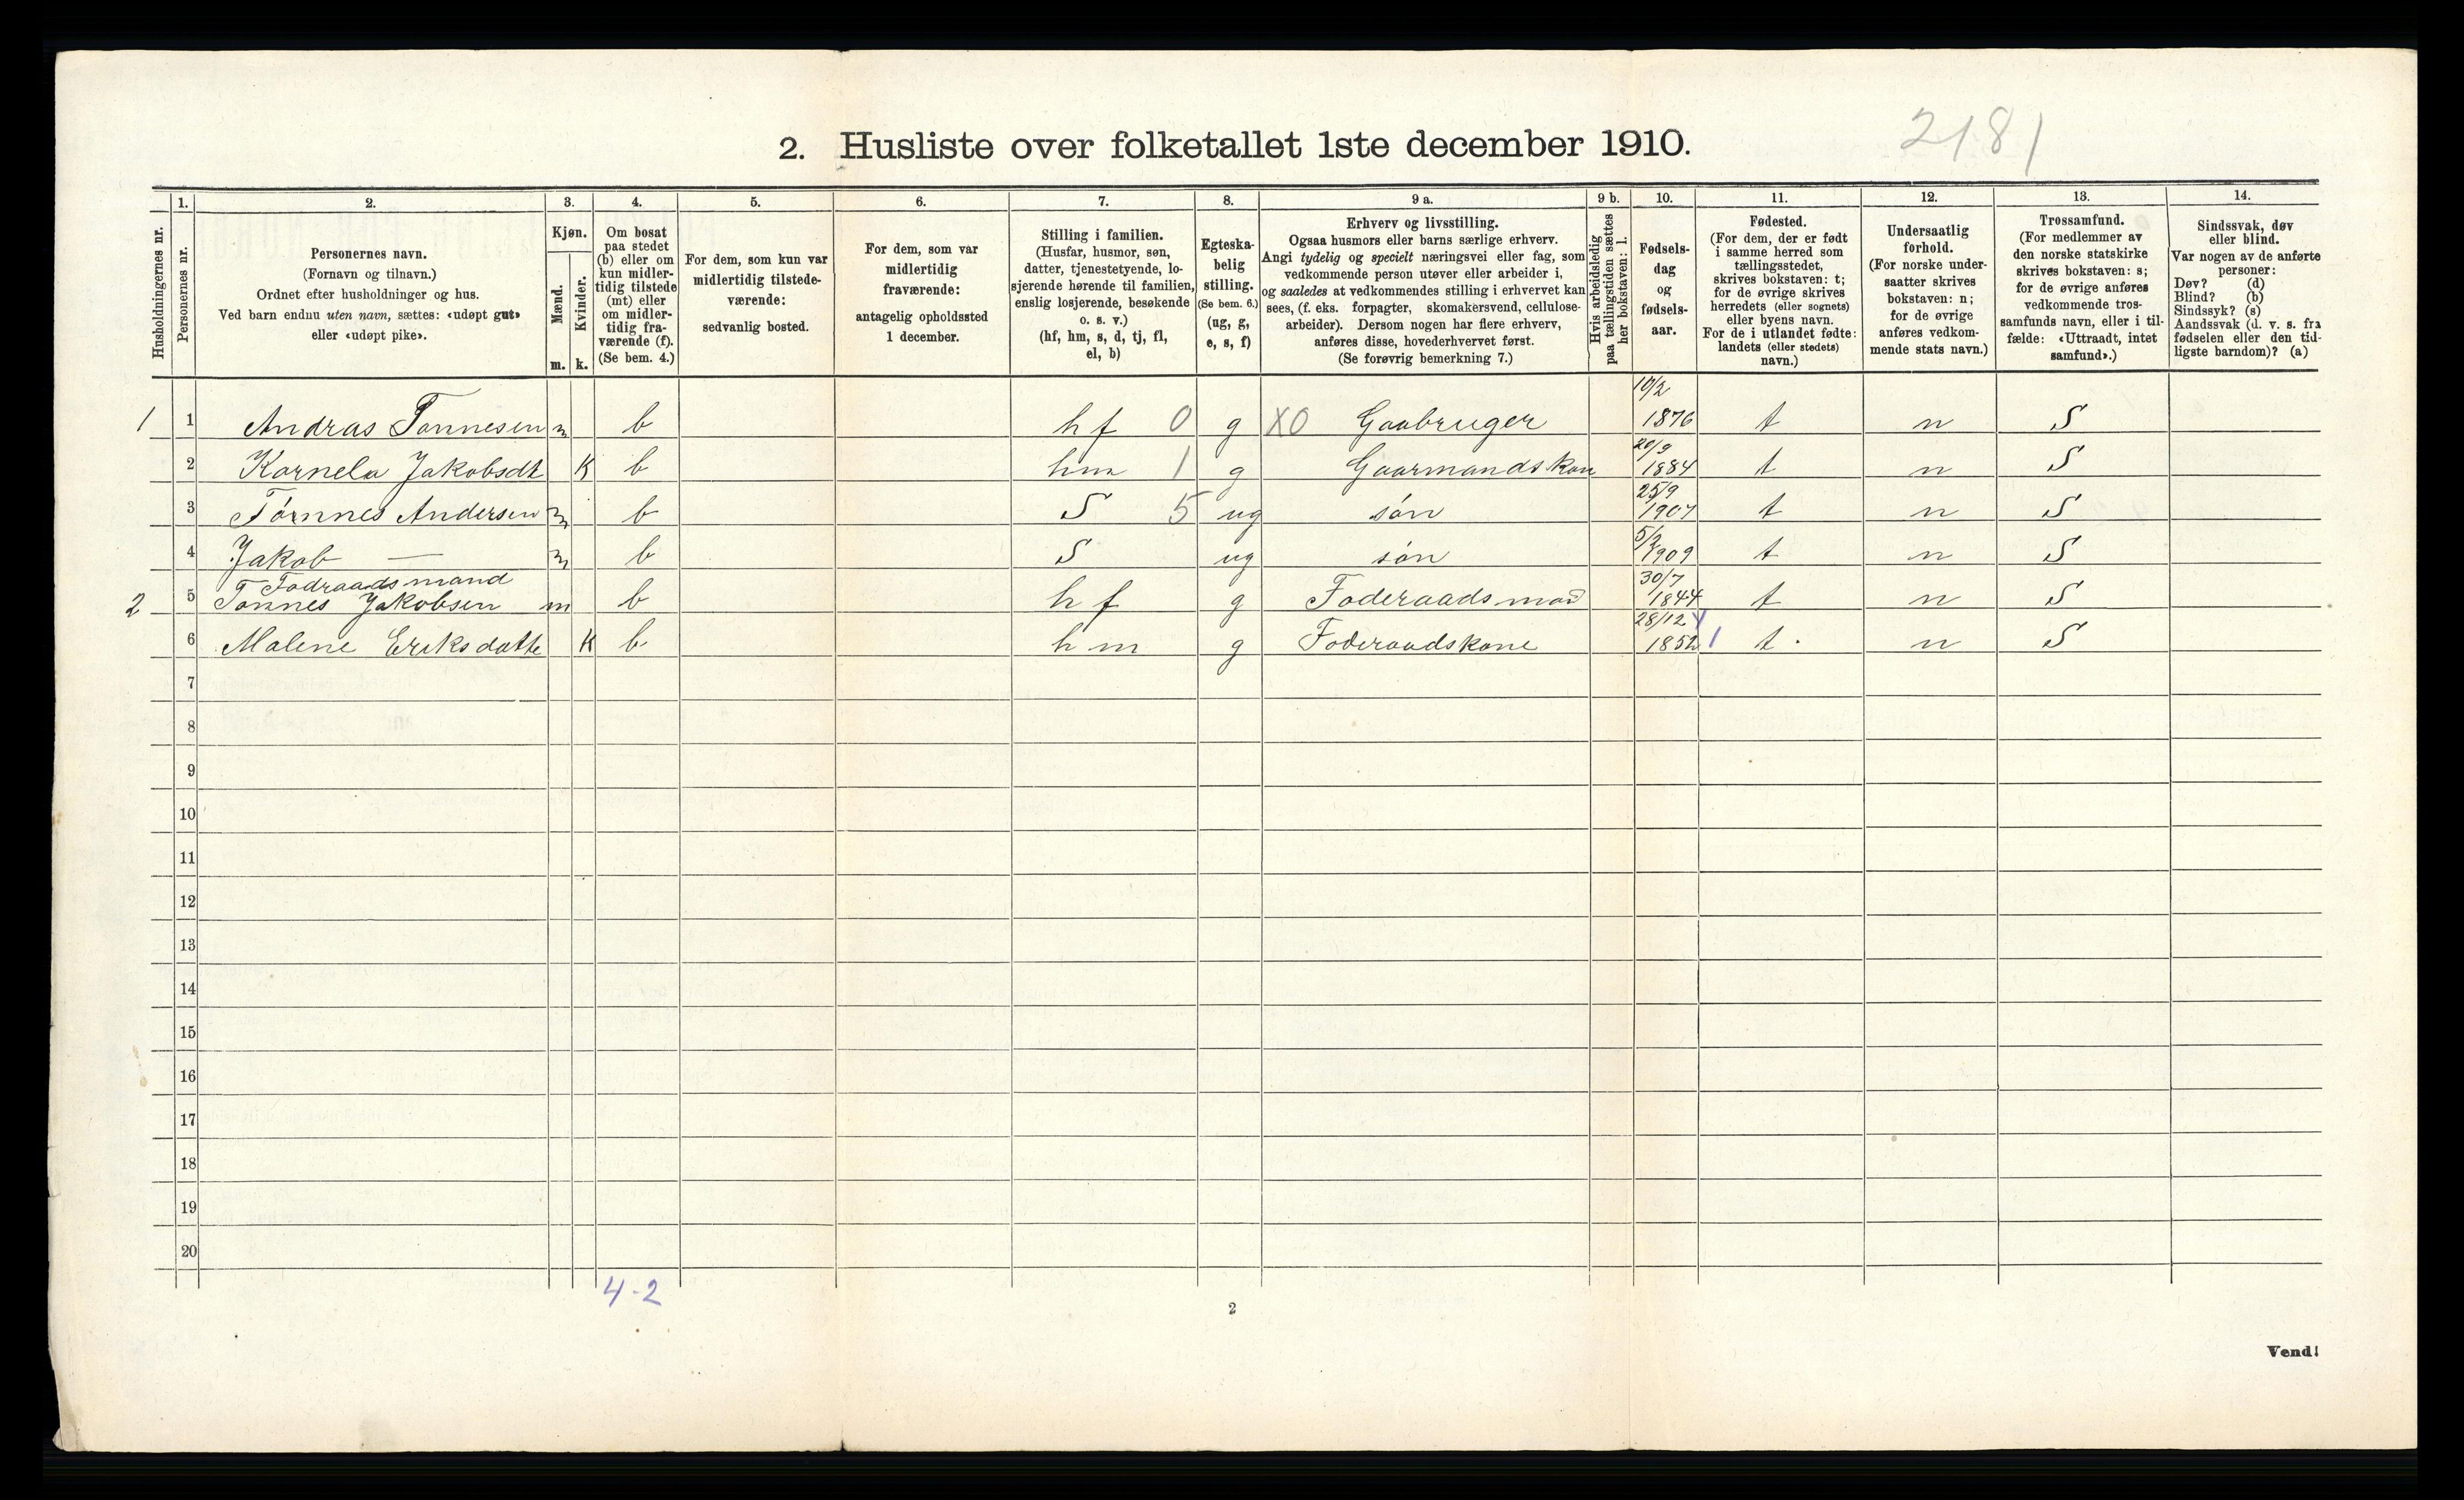 2. Husliste over folketallet 1ste december 1910.
2181
Husholdningernes nr.
1.
Personernes nr.
2.
Personernes navn.
(Fornavn og tilnavn.)
Ordnet efter husholdninger og hus.
Ved barn endnu uten navn, sættes: «udøpt gut»
eller «udøpt pike».
3.
Kjøn.
Mænd.
Kvinder.
m. k.
4.
Om bosat
paa stedet
(b) eller om
kun midler-
tidig tilstede
(mt) eller
om midler-
tidig fra-
værende (f).
(Se bem. 4.)
5.
For dem, som kun var
midlertidig tilstede-
værende:
sedvanlig bosted.
6.
For dem, som var
midlertidig
fraværende:
antagelig opholdssted
1 december.
7.
Stilling i familien.
(Husfar, husmor, søn,
datter, tjenestetyende, lo-
sjerende hørende til familien,
enslig losjerende, besøkende
o. s. v.)
(hf, hm, s, d, tj, fl,
el, b)
8.
Egteska-
belig
stilling.
(Se bem. 6.)
(ug, g,
e, s, f)
9 a.
Erhverv og livsstilling.
Ogsaa husmors eller barns særlige erhverv.
Angi tydelig og specielt næringsvei eller fag, som
vedkommende person utøver eller arbeider i,
og saaledes at vedkommendes stilling i erhvervet kan
sees, (f. eks. forpagter, skomakersvend, cellulose-
arbeider). Dersom nogen har flere erhverv,
anføres disse, hovederhvervet først.
(Se forøvrig bemerkning 7.)
9 b.
Hvis arbeidsledig
paa tællingstiden sættes
her bokstaven: l.
10.
Fødsels-
dag
og
fødsels-
aar.
11.
Fødested.
(For dem, der er født
i samme herred som
tællingsstedet,
skrives bokstaven: t;
for de øvrige skrives
herredets (eller sognets)
eller byens navn.
For de i utlandet fødte:
landets (eller stedets)
navn.)
12.
Undersaatlig
forhold.
(For norske under-
saatter skrives
bokstaven: n;
for de øvrige
anføres vedkom-
mende stats navn.)
13.
Trossamfund.
(For medlemmer av
den norske statskirke
skrives bokstaven: s;
for de øvrige anføres
vedkommende tros-
samfunds navn, eller i til-
fælde: «Uttraadt, intet
samfund».)
14.
Sindssvak, døv
eller blind.
Var nogen av de anførte
personer:
Døv? (d)
Blind? (b)
Sindssyk? (s)
Aandssvak (d. v. s. fra
fødselen eller den tid-
ligste barndom)? (a)
1 1 Andras Tønnesen m b hf 0 g X0 Gaabruger 10/2 1876 t n S
2 Kornela Jakobsdt K b hm 1 g Gaarmandskon 20/9 1884 t n S
3 Tønnes Andersen m b S 5 ug søn 25/9 1907 t n S
4 Jakob — m b S ug søn 5/2 1909 t n S
Fodraadsmand
2 5 Tønnes Jakobsen m b hf g Foderaadsmand 30/7 1844 t n S
6 Malene Eriksdatte K b hm g Foderaadskone 28/12 1852 1 t. n S
7
8
9
10
11
12
13
14
15
16
17
18
19
20
4-2
2
Vend!